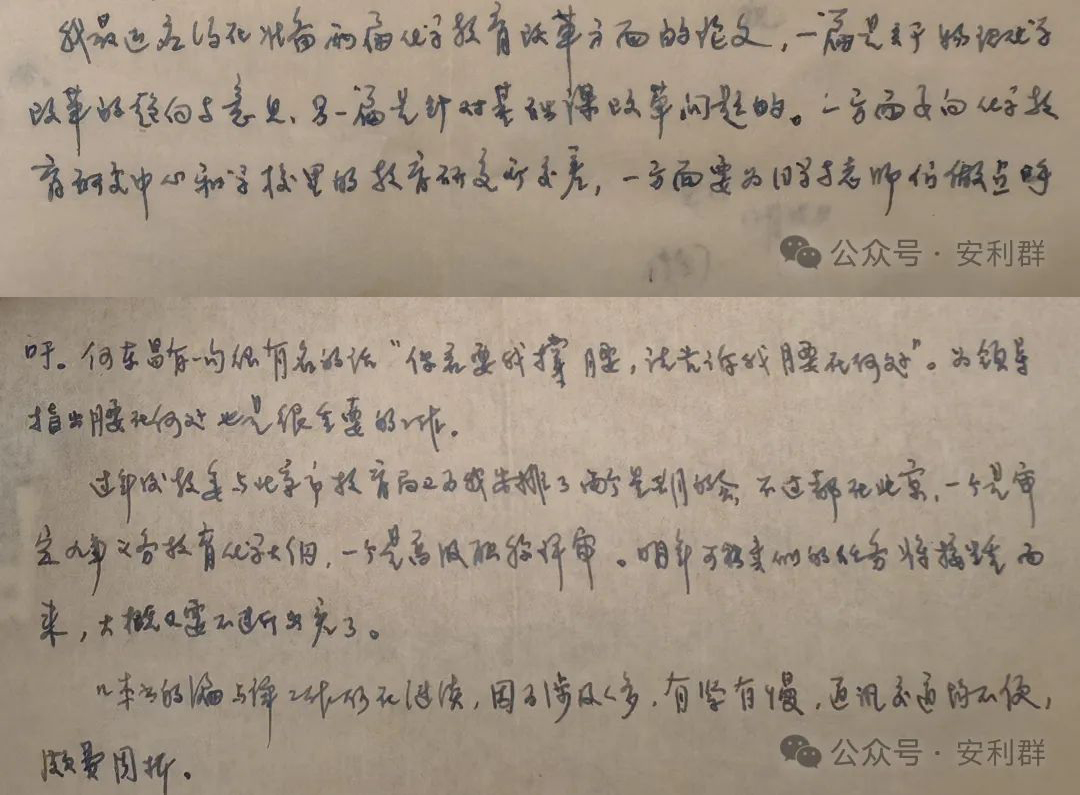 我最近在准备两篇化学教育改革方面的论文，一篇是关于物理化学
改革的趋向与意见，另一篇是针对基础课改革问题的。一方面要向化学教
育研究中心和学校里的教育研究所交差，一方面要为同学与老师们做点呼
公众号·安利群
吁。何东昌有一句很有名的话“你若要我撑腰，请告诉我腰在何处”。为领导
指出腰在何处也是很重要的工作。
过年后教委与北京市教育局又为我安排了两个星期的会，不过都在北京，一个是审
定九年义务教育化学大纲，一个是高级职称评审。明年可能类似的任务将接踵而
来，大概又要不断出差了。
几本书的编与译工作仍在继续，因为涉及人多，有紧有慢，通讯交通均不便，
颇费周折。
公众号·安利群